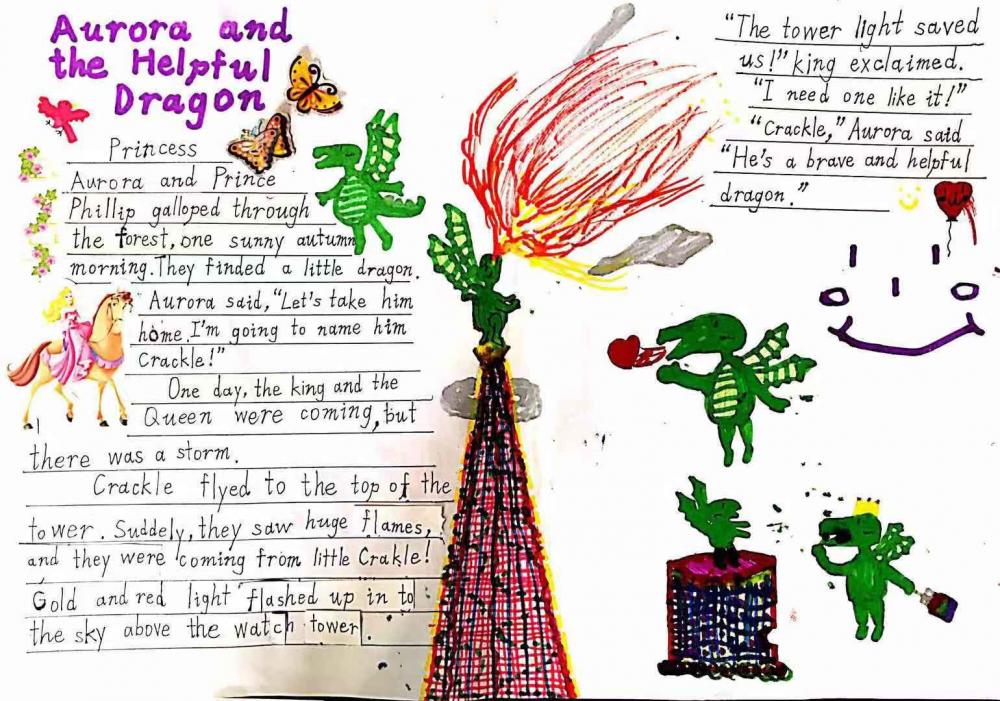 Aurora and
the Helpful
Dragon
Princess
Aurora and Prince
Phillip galloped through
the forest, one sunny autumn
morning. They finded a little dragon.
Aurora said, "Let's take him
home. I'm going to name him
Crackle!"
One day, the king and the
Queen were coming, but
there was a storm.
Crackle flyed to the top of the
tower. Suddely, they saw huge flames,
and they were coming from little Crakle!
Gold and red light flashed up in to
the sky above the watch tower.
"The tower light saved
us!" king exclaimed.
"I need one like it!"
"Crackle," Aurora said
"He's a brave and helpful
dragon."